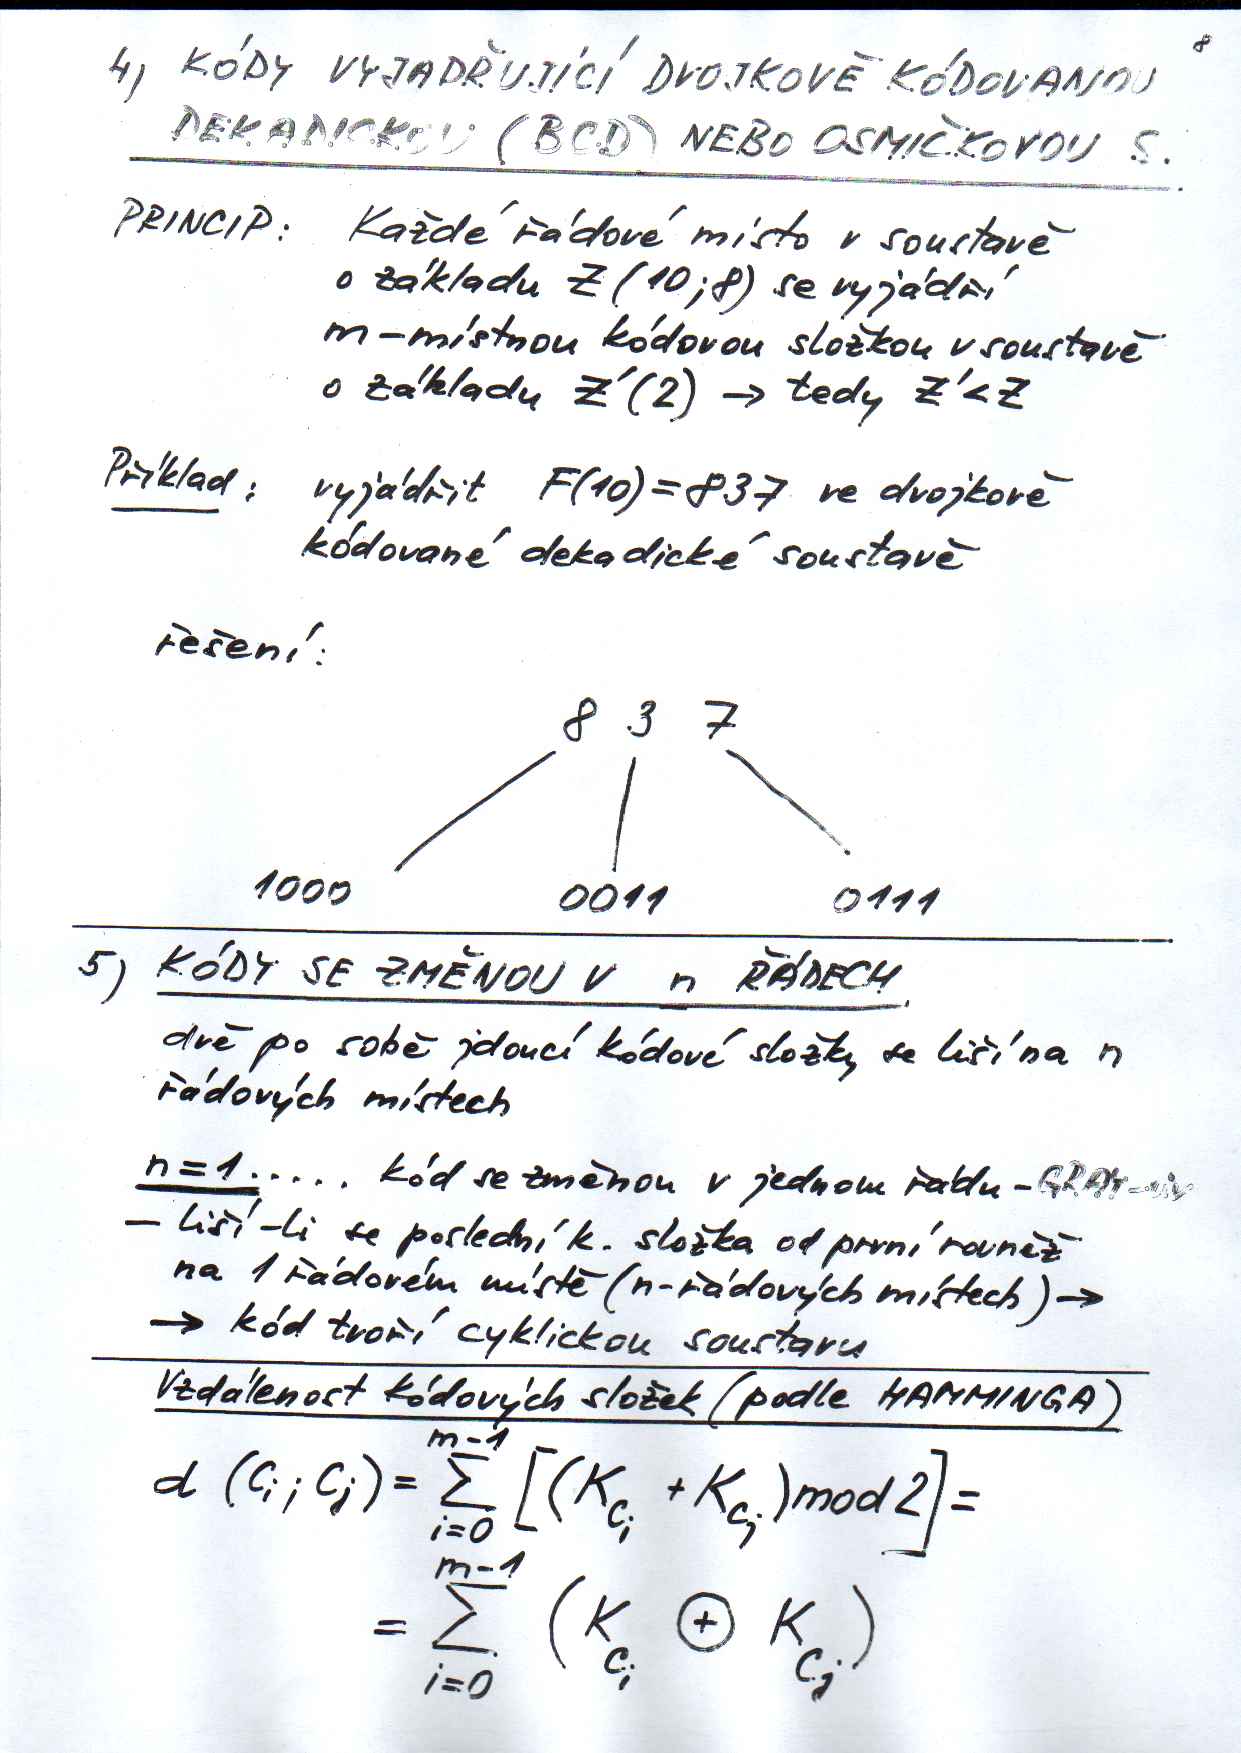 8
4) KÓDY VYJADŘUJÍCÍ DVOJKOVĚ KÓDOVANOU
DEKADICKOU (BCD) NEBO OSMIČKOVOU S.
PRINCIP: Každé řádové místo v soustavě
o základu Z (10;8) se vyjádří
m-místnou kódovou složkou v soustavě
o základu Z'(2) → tedy Z'<Z
Příklad: vyjádřit F(10)=837 ve dvojkově
kódované dekadické soustavě
řešení:
8 3 7
1000 0011 0111
5) KÓDY SE ZMĚNOU V n ŘÁDECH
dvě po sobě jdoucí kódové složky se liší na n
řádových místech
n=1..... kód se změnou v jednom řádu -GRAY
- liší-li se poslední k. složka od první rovněž
na 1 řádovém místě (n-řádových místech) →
→ kód tvoří cyklickou soustavu
Vzdálenost kódových složek (podle HAMMINGA)
d (Ci; Cj) = ∑_{i=0}^{m-1} [(K_{Ci} + K_{Cj}) mod 2] =
= ∑_{i=0}^{m-1} (K_{Ci} ⊕ K_{Cj})